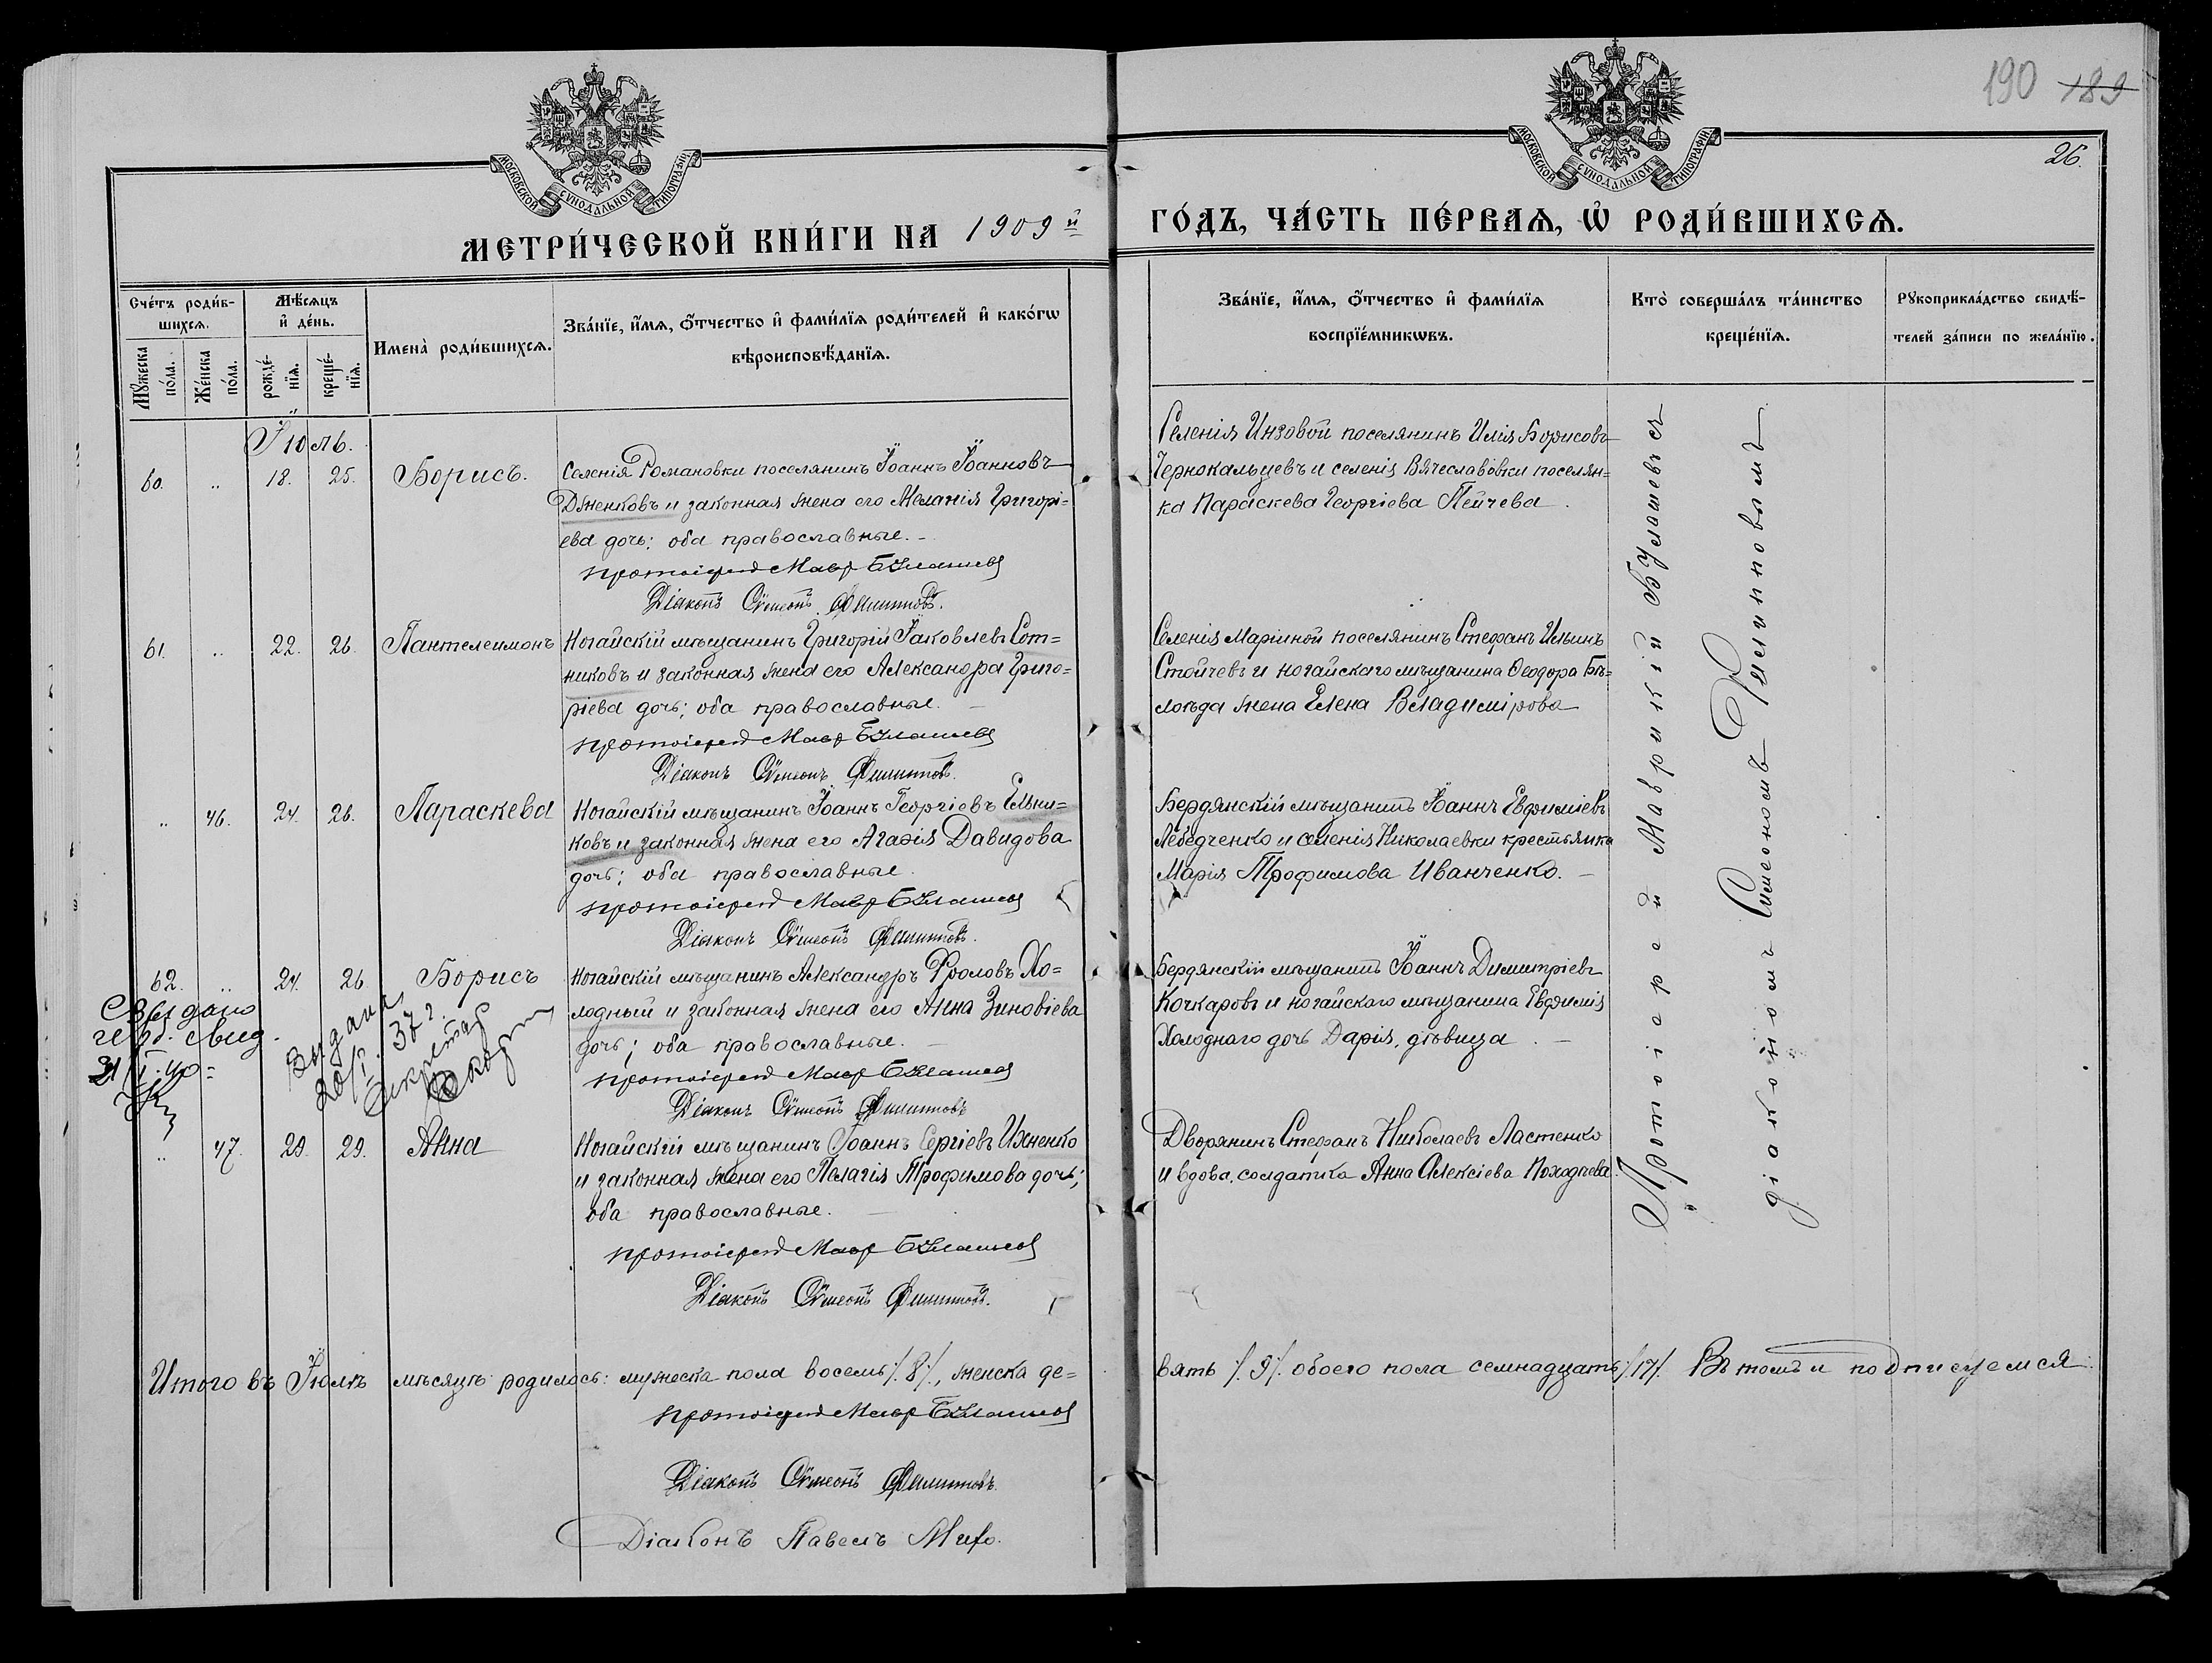 190 189
26.
МОСКОВСКОЙ СѴНОДАЛЬНОЙ ТИПОГРАФІИ
МОСКОВСКОЙ СѴНОДАЛЬНОЙ ТИПОГРАФІИ
МЕТРИ́ЧЕСКОЙ КНИ́ГИ НА 1909й ГО́ДЪ, ЧА́СТЬ ПЕ́РВАѦ, Ѡ҆ РОДИ́ВШИХСѦ.
Сче́тъ роди́в-
шихсѧ.
Мꙋ́жеска по́ла.
Же́нска по́ла.
Мѣ́сѧцъ
и҆ де́нь.
рожде́-
нїѧ.
креще́-
нїѧ.
Имена̀ роди́вшихсѧ.
Зва́нїе, и҆́мѧ, ѻ҆́тчество и҆ фами́лїѧ роди́телей и҆ како́гѡ
вѣроисповѣ́данїѧ.
Зва́нїе, и҆́мѧ, ѻ҆́тчество и҆ фами́лїѧ
воспрїе́мникѡвъ.
Кто̀ соверша́лъ та́инство
креще́нїѧ.
Рꙋкоприкла́дство свидѣ́-
телей за́писи по жела́нїю.
Іюль.
60. „ 18. 25. Борисъ.
Селенія Романовки поселянинъ Іоаннъ Іоанновъ
Дженковъ и законная жена его Меланія Григорі=
ева дочь; оба православные.
Протоіерей Мавр Булашевъ
Діаконъ Сѵмеонъ Филипповъ.
Селенія Инзовой поселянинъ Илія Борисовъ
Чернокальцевъ и селенія Вячеславовки поселян=
ка Параскева Георгіева Пейчева.
61. „ 22. 26. Пантелеимонъ
Ногайскій мѣщанинъ Григорій Іаковлевъ Сот=
никовъ и законная жена его Александра Григо=
ріева дочь; оба православные.
Протоіерей Мавр Булашевъ
Діаконъ Сѵмеонъ Филипповъ.
Селенія Маріиной поселянинъ Стефанъ Ильинъ
Стойчевъ и ногайскаго мѣщанина Ѳеодора Бѣ=
лоѣда жена Елена Владимірова
„ 46. 24. 26. Параскева
Ногайскій мѣщанинъ Іоаннъ Георгіевъ Ельни=
ковъ и законная жена его Агаѳія Давидова
дочь; оба православные.
Протоіерей Мавр Булашевъ
Діаконъ Сѵмеонъ Филипповъ.
Бердянскій мѣщанинъ Іоаннъ Евфиміевъ
Лебедченко и селенія Николаевки крестьянка
Марія Трофимова Иванченко.
62. „ 24. 26. Борисъ
Ногайскій мѣщанинъ Александръ Фроловъ Хо=
лодный и законная жена его Анна Зиновіева
дочь; оба православные.
Протоіерей Мавр Булашевъ
Діаконъ Сѵмеонъ Филипповъ
Бердянскій мѣщанинъ Іоаннъ Димитріевъ
Кочкаровъ и ногайскаго мѣщанина Евфимія
Холоднаго дочь Дарія, дѣвица.
свид.
Видана
37 г.
Секретар
„ 47. 29. 29. Анна
Ногайскій мѣщанинъ Іоаннъ Сергіевъ Ихненко
и законная жена его Пелагія Трофимова дочь;
оба православные.
Протоіерей Мавр Булашевъ
Діаконъ Сѵмеонъ Филипповъ.
Дворянинъ Стефанъ Николаевъ Ластенко
и вдова, солдатка Анна Алексіева Походчева.
Протоіерей Маврикій Булашевъ съ
діакономъ Сѵмеономъ Филипповымъ
Итого въ Іюлѣ мѣсяцѣ родилось: мужеска пола восемь /.8/., женска де=
вять /.9/. обоего пола семнадцать /.17/. Въ томъ и подписуемся:
Протоіерей Мавр Булашевъ
Діаконъ Сѵмеонъ Филипповъ.
Діаконъ Павелъ